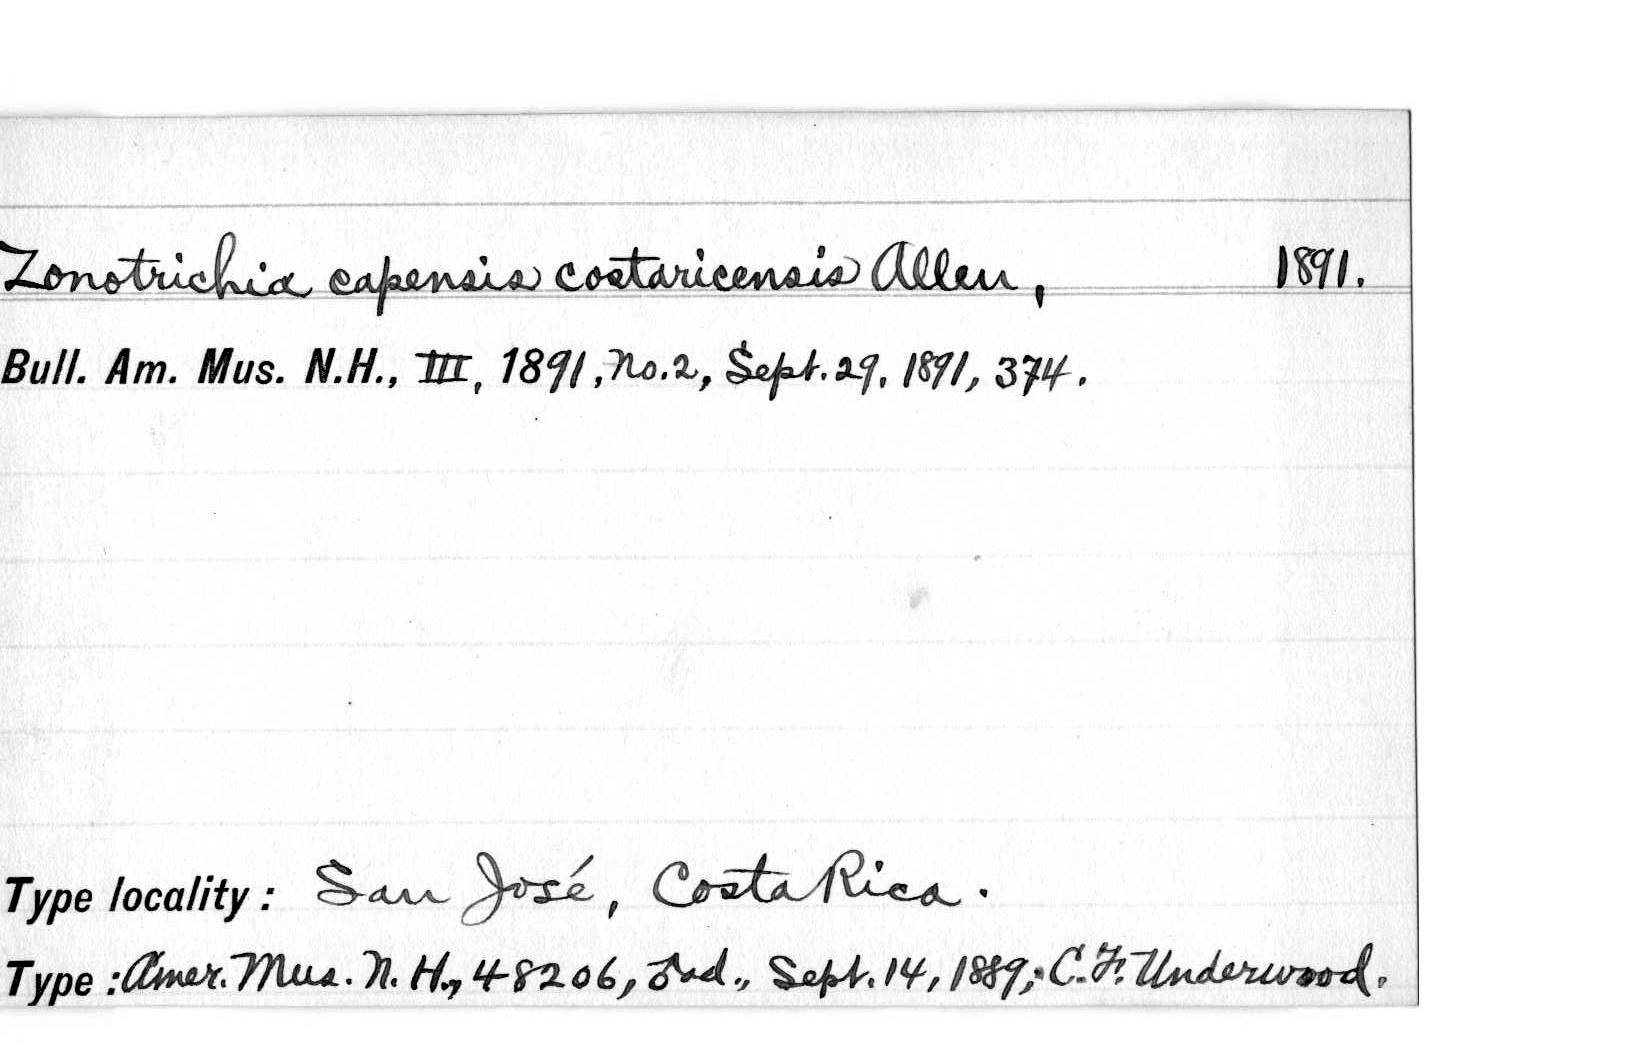 Zonotrichia capensis costaricensis Allen, 1891.
Bull. Am. Mus. N.H., III, 1891, No. 2, Sept. 29, 1891, 374.
Type locality: San José, Costa Rica.
Type: Amer. Mus. N. H., 48206, ♂ ad., Sept. 14, 1889; C. F. Underwood.